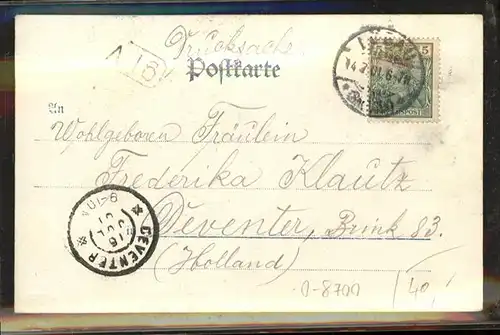 Drucksache
Postkarte
18
5
14.7.01. 6-7N.
REICHSPOST
An
Wohlgeboren Fräulein
Frederika Klautz
Deventer, Brink 83.
(Holland)
DEVENTER
16
JUL
01
9-10V
0-8700
40,-